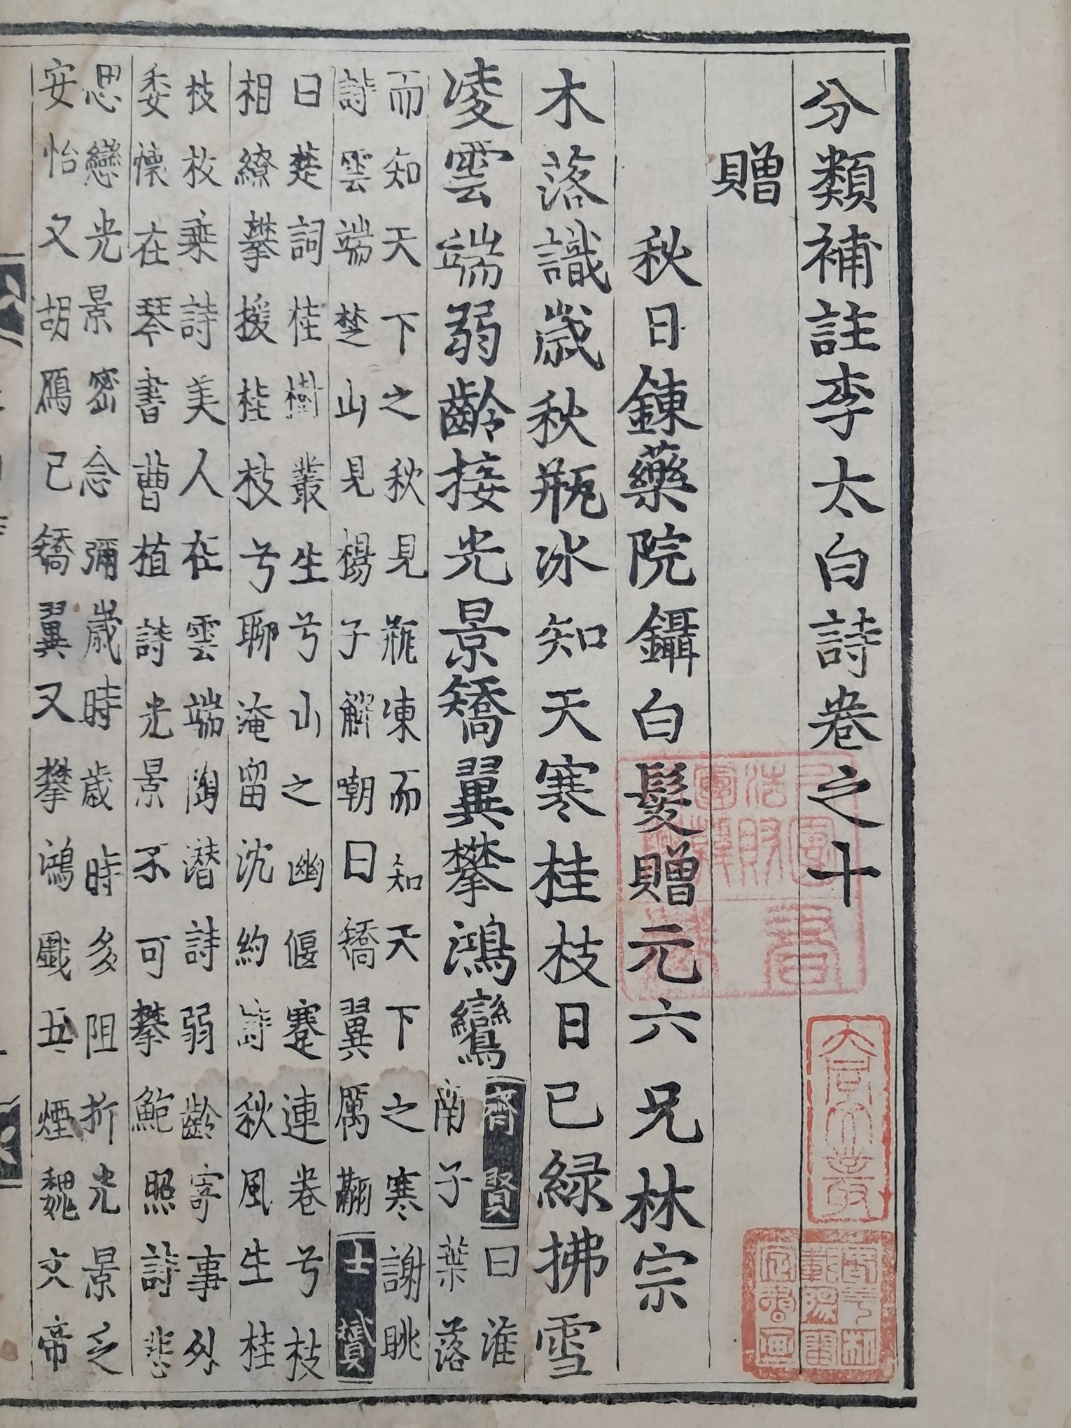 分類補註李太白詩卷之十
贈
秋日鍊藥院鑷白髮贈元六兄林宗
木落識歲秋瓶冰知天寒桂枝日已緑拂雪
凌雲端弱齡接光景矯翼攀鴻鸞齊賢曰淮
南子葉落
而知天下之秋見瓶凍而知天下之寒謝眺
詩雲端楚山見楊子解嘲曰矯翼厲翮士贇
曰楚詞桂樹叢生兮山之幽偃蹇連卷兮枝
相繚攀援桂枝兮聊淹留沈約詩秋風生桂
枝枚乗詩美人在雲端陶潜詩弱齡寄事外
委懷在琴書曹植詩光景不可攀鮑照詩悲
思戀光景宻念彌歲時歲時多阻折光景乏
安怡又胡鴈已矯翼又攀鴻戲五煙魏文帝